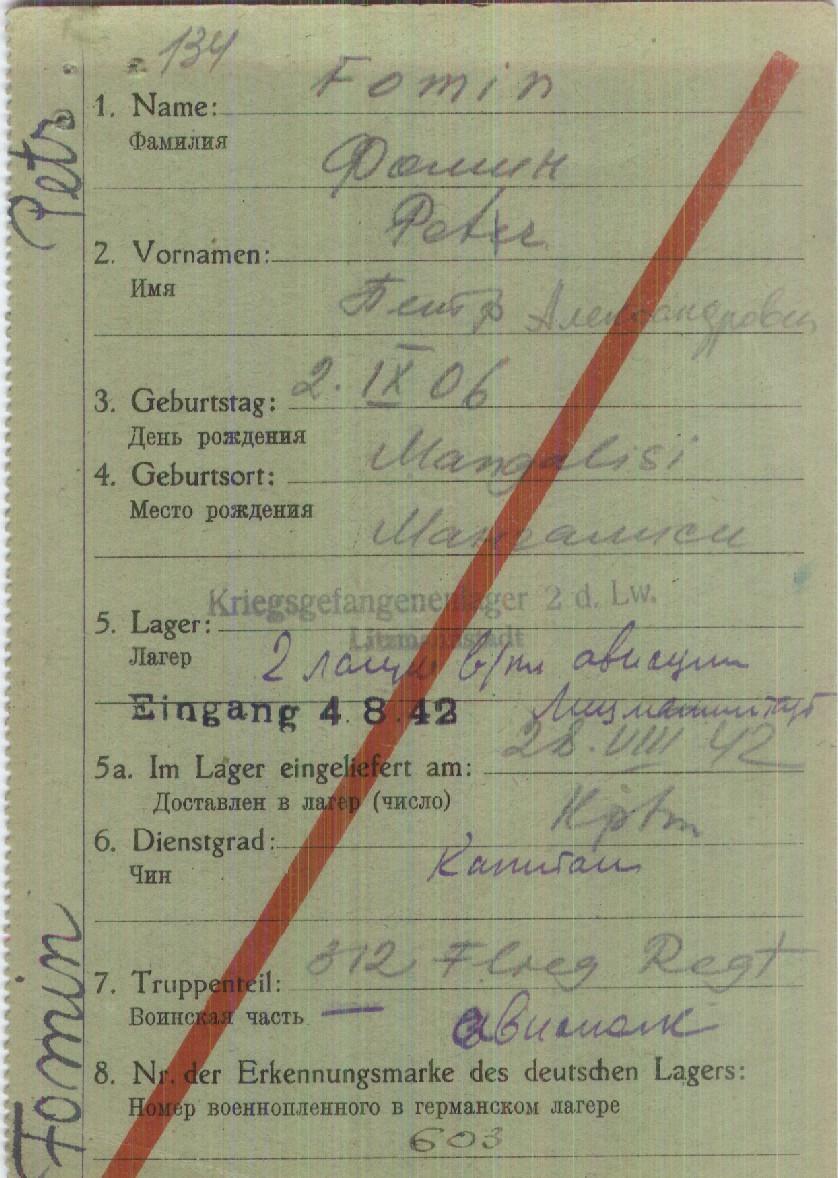 134
Fomin
1. Name:
Фамилия
Фомин
Peter
2. Vornamen:
Имя
Петр Александрович
3. Geburtstag: 2. IX 06
День рождения
Mangalisi
4. Geburtsort:
Место рождения
Мангалиси
Kriegsgefangenenlager 2 d. Lw.
Litzmannstadt
5. Lager:
Лагер
2 лагерь в/пл авиации
Лицманштадт
Eingang 4.8.42
28. VIII 42
5a. Im Lager eingeliefert am:
Доставлен в лагер (число)
Hptm
6. Dienstgrad:
Чин
Капитан
7. Truppenteil: 312 Flieg Regt
Воинская часть — авиаполк
8. Nr. der Erkennungsmarke des deutschen Lagers:
Номер военнопленного в германском лагере
603
Fomin Petr.